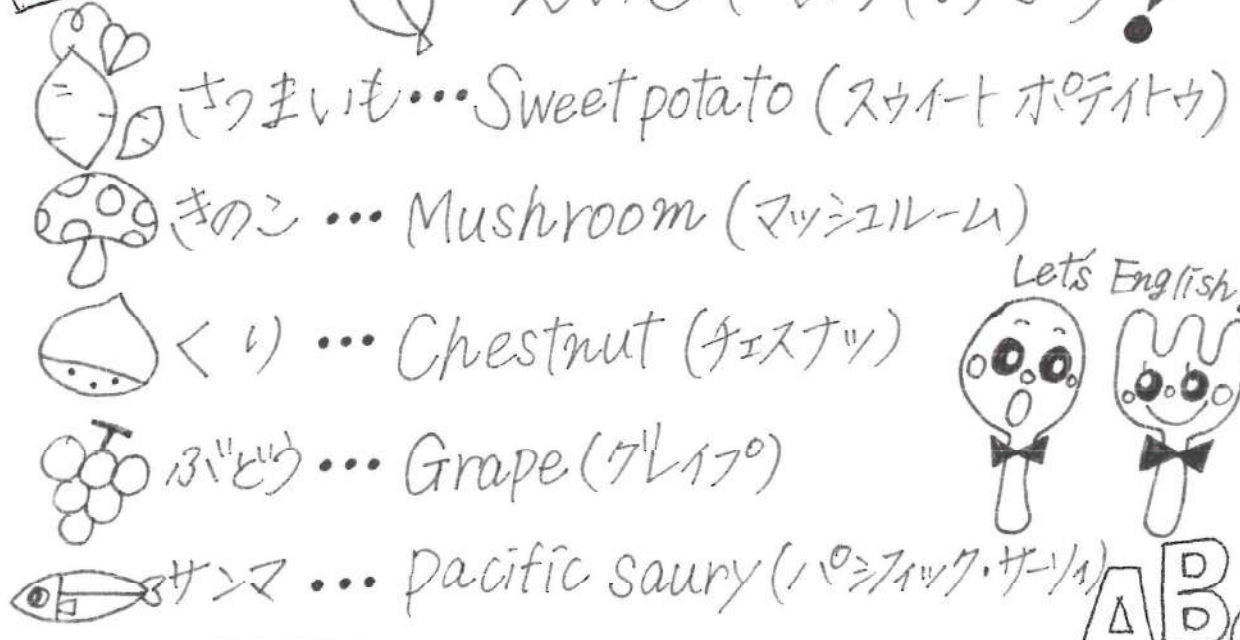 さつまいも•••Sweet potato (スウィート ポテイトゥ)
きのこ ••• Mushroom (マッシュルーム)
Let's English!
くり ••• Chestnut (チェスナッツ)
ぶどう ••• Grape (グレイプ)
サンマ ••• pacific saury (パシフィック・サーリィ)
AB